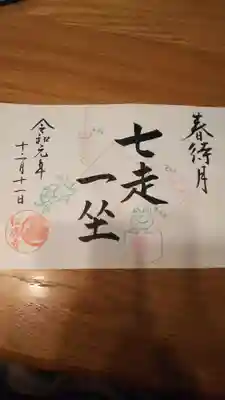 春待月
七走
一坐
令和元年
十二月十一日